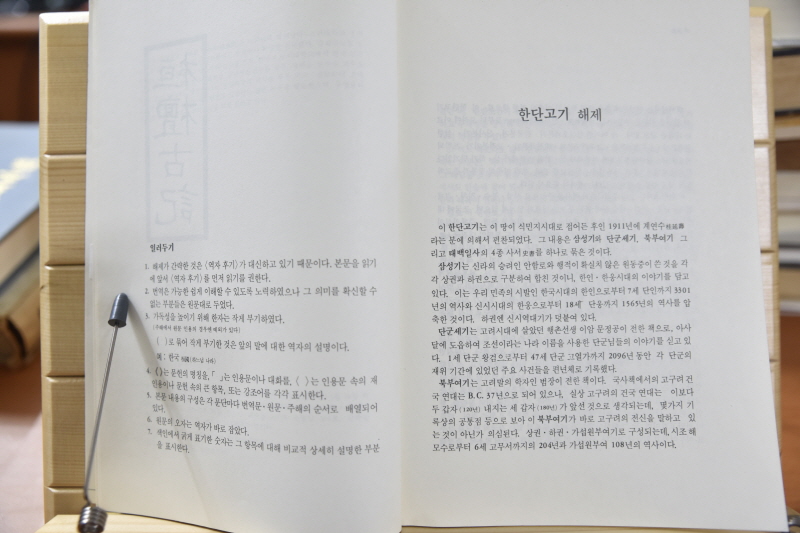 일러두기
1. 해제가 간략한 것은 〈역자 후기〉가 대신하고 있기 때문이다. 본문을 읽기
에 앞서 〈역자 후기〉를 먼저 읽기를 권한다.
2. 번역은 가능한 쉽게 이해할 수 있도록 노력하였으나 그 의미를 확신할 수
없는 부분들은 원문대로 두었다.
3. 가독성을 높이기 위해 한자는 작게 부기하였다.
(주해에서 원문 인용의 경우엔 예외가 있다)
( )로 묶어 작게 부기한 것은 앞의 말에 대한 역자의 설명이다.
예: 한국
4. 《 》는 문헌의 명칭을, 「 」는 인용문이나 대화를, 〈 〉는 인용문 속의 재
인용이나 문헌 속의 큰 항목, 또는 강조어를 각각 표시한다.
5. 본문 내용의 구성은 각 문단마다 번역문·원문·주해의 순서로 배열되어
있다.
6. 원문의 오자는 역자가 바로 잡았다.
7. 색인에서 굵게 표기한 숫자는 그 항목에 대해 비교적 상세히 설명한 부분
을 표시한다.
한단고기 해제
이 한단고기는 이 땅이 식민지시대로 접어든 후인 1911년에 계연수桂延壽
라는 분에 의해서 편찬되었다. 그 내용은 삼성기와 단군세기, 북부여기 그
리고 태백일사의 4종 사서史書를 하나로 묶은 것이다.
삼성기는 신라의 승려인 안함로와 행적이 확실치 않은 원동중이 쓴 것을 각
각 상권과 하권으로 구분하여 합친 것이니, 한인·한웅시대의 이야기를 담고
있다. 이는 우리 민족의 시발인 한국시대의 한인으로부터 7세 단인까지 3301
년의 역사와 신시시대의 한웅으로부터 18세 단웅까지 1565년의 역사를 압
축한 것이다. 하권엔 신시역대기가 덧붙여 있다.
단군세기는 고려시대에 살았던 행촌선생 이암 문정공이 전한 책으로, 아사
달에 도읍하여 조선이라는 나라 이름을 사용한 단군님들의 이야기를 싣고 있
다. 1세 단군 왕검으로부터 47세 단군 고열가까지 2096년 동안 각 단군의
재위 기간에 있었던 주요 사건들을 편년체로 기록했다.
북부여기는 고려말의 학자인 범장이 전한 책이다. 국사책에서의 고구려 건
국 연대는 B.C. 37년으로 되어 있으나, 실상 고구려의 건국 연대는 이보다
두 갑자(120년) 내지는 세 갑자(180년)가 앞선 것으로 생각되는데, 몇가지 기
록상의 공통점 등으로 보아 이 북부여기가 바로 고구려의 전신을 말하고 있
는 것이 아닌가 의심된다. 상권·하권·가섭원부여기로 구성되는데, 시조 해
모수로부터 6세 고무서까지의 204년과 가섭원부여 108년의 역사이다.